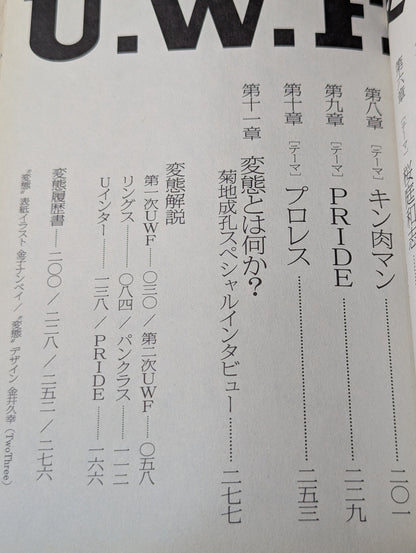 U.W.F.
第六章［テーマ］
第八章［テーマ］キン肉マン……………二〇一
第九章［テーマ］PRIDE……………二二九
第十章［テーマ］プロレス……………二五三
第十一章 変態とは何か？
菊地成孔スペシャルインタビュー……………二七七
変態解説
第一次UWF……〇三〇／第二次UWF……〇五八
リングス……〇八四／パンクラス……一一二
Uインター……一三八／PRIDE……一六六
変態履歴書──二〇〇／二二八／二五二／二七六
〝変態〟表紙イラスト 金子ナンペイ／〝変態〟デザイン 金井久幸（TwoThree）